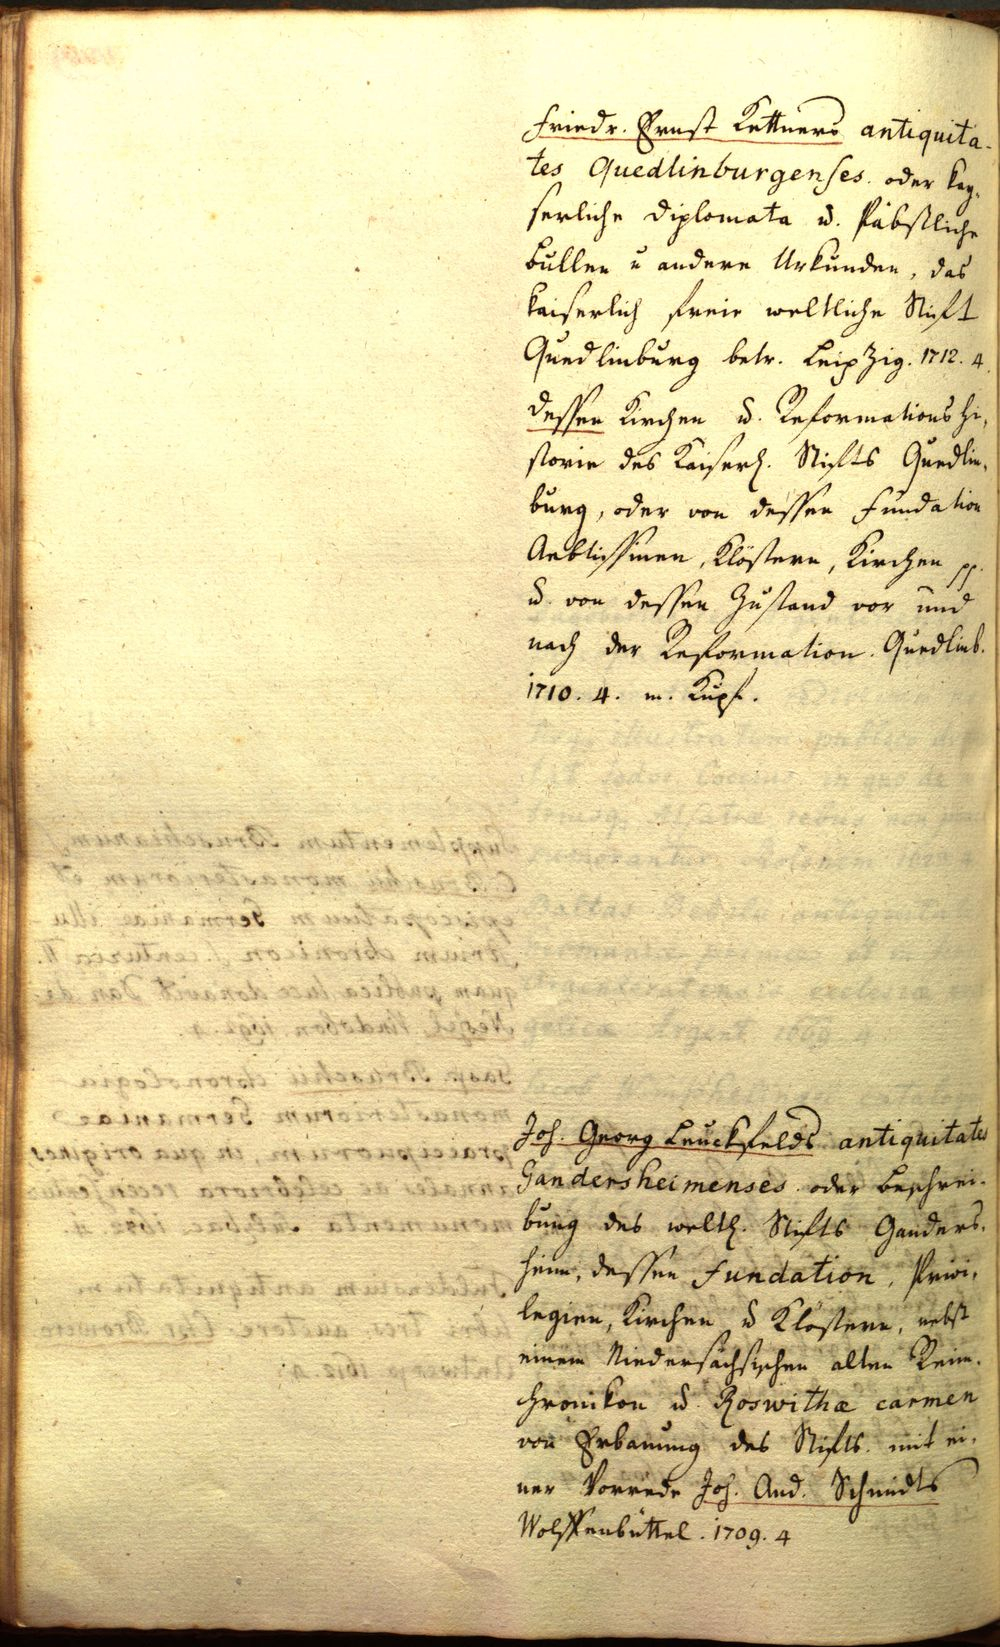 Friedr. Ernst Kettners antiquita-
tes Quedlinburgenses. oder Kay-
serliche Diplomata u. Päbstliche
Bullen u andere Urkunden, das
Kaiserlich freie weltliche Stift
Quedlinburg betr. Leipzig. 1712. 4.
dessen Kirchen u. Reformations Hi-
storie des Kaiserl. Stifts Quedlin-
burg, oder von dessen Fundation
Aebtissinen, Klöstern, Kirchen pp.
u. von dessen Zustand vor und
nach der Reformation. Quedlinb.
1710. 4. m. Kupf.
Joh. Georg Leuckfelds antiquitates
Gandersheimenses. oder Beschrei-
bung des weltl. Stifts Ganders-
heim, dessen Fundation, Privi-
legien, Kirchen u Klöstern, nebst
einem Niedersächsischen alten Reim-
chronikon u. Roswithæ carmen
von Erbauung des Stifts. mit ei-
ner Vorrede Joh. And. Schmidts
Wolffenbüttel. 1709. 4